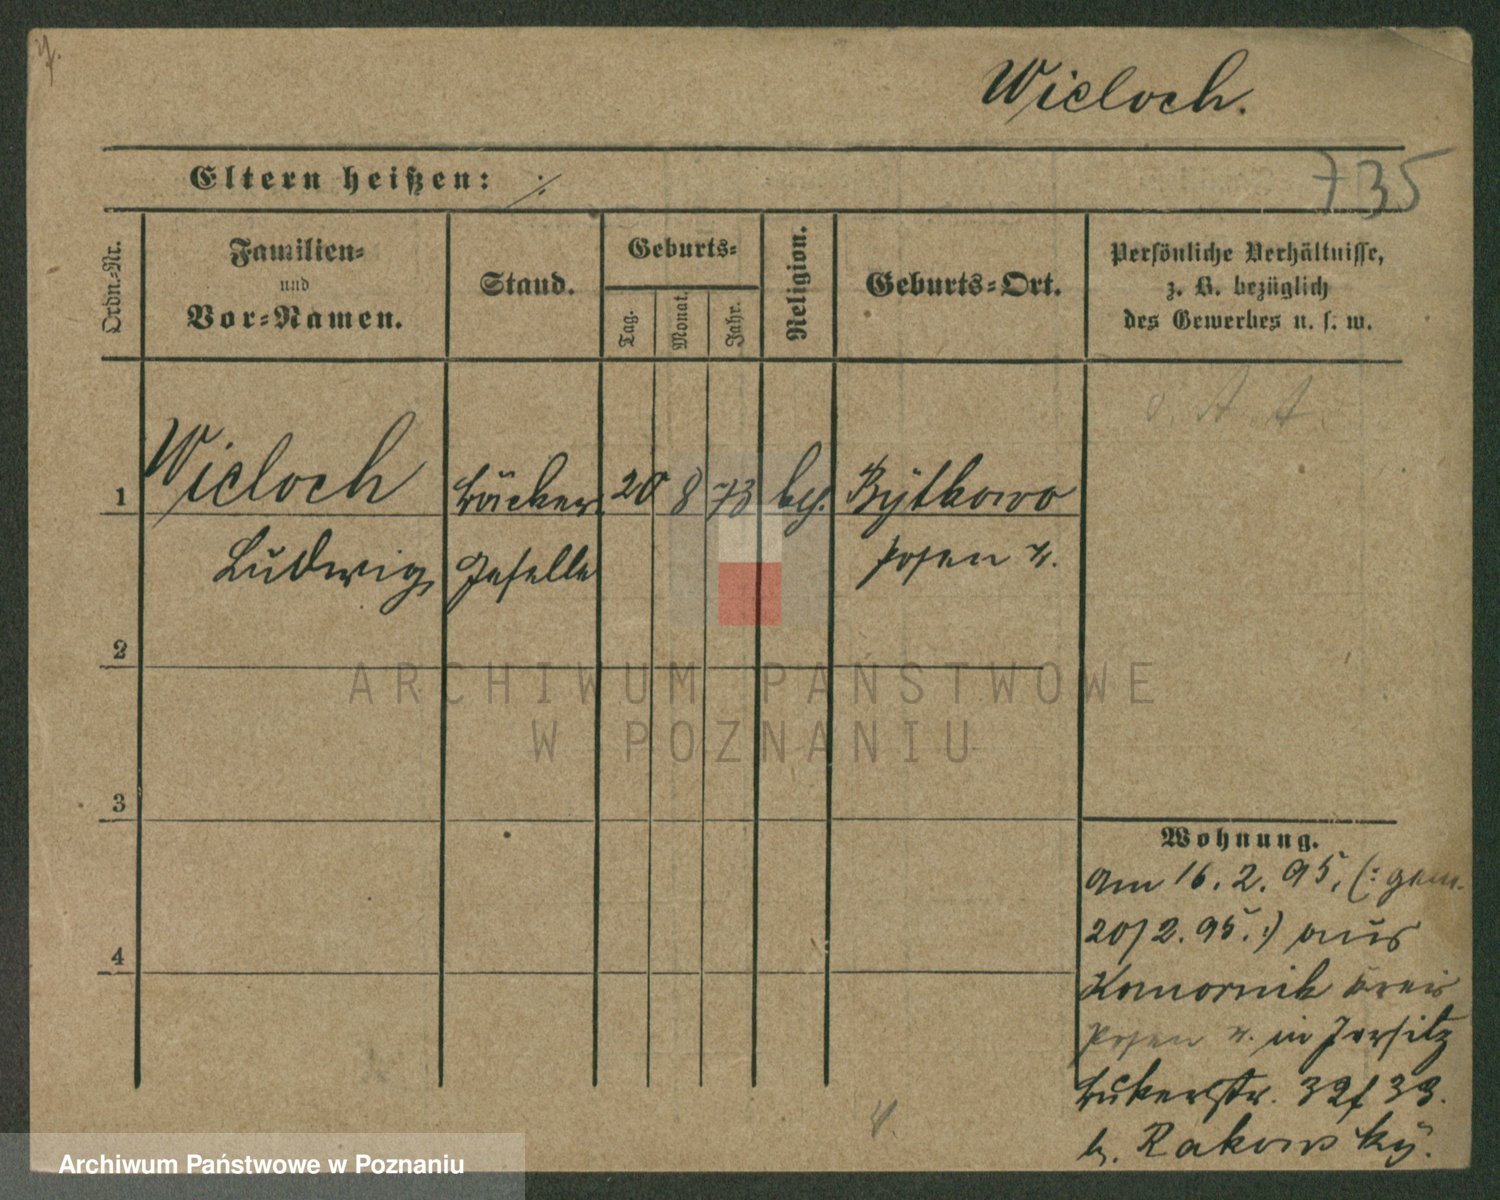 Wieloch.
735
Eltern heißen: ./.
Ordn.-Nr.
Familien-
und
Vor-Namen.
Stand.
Geburts-
Tag.
Monat.
Jahr.
Religion.
Geburts-Ort.
Persönliche Verhältnisse,
z. B. bezüglich
des Gewerbes u. s. w.
1 Wieloch Bäcker 20 8 73 Bytkowo
Ludwig Geselle Posen W.
2
3
4
Wohnung.
Am 16.2.95. (: gem.
20/2.95. :) aus
Komornik Kreis
Posen W. in Jersitz
Bukerstr. 32/33.
b. Rakowsky.
ARCHIWUM PAŃSTWOWE
W POZNANIU
Archiwum Państwowe w Poznaniu